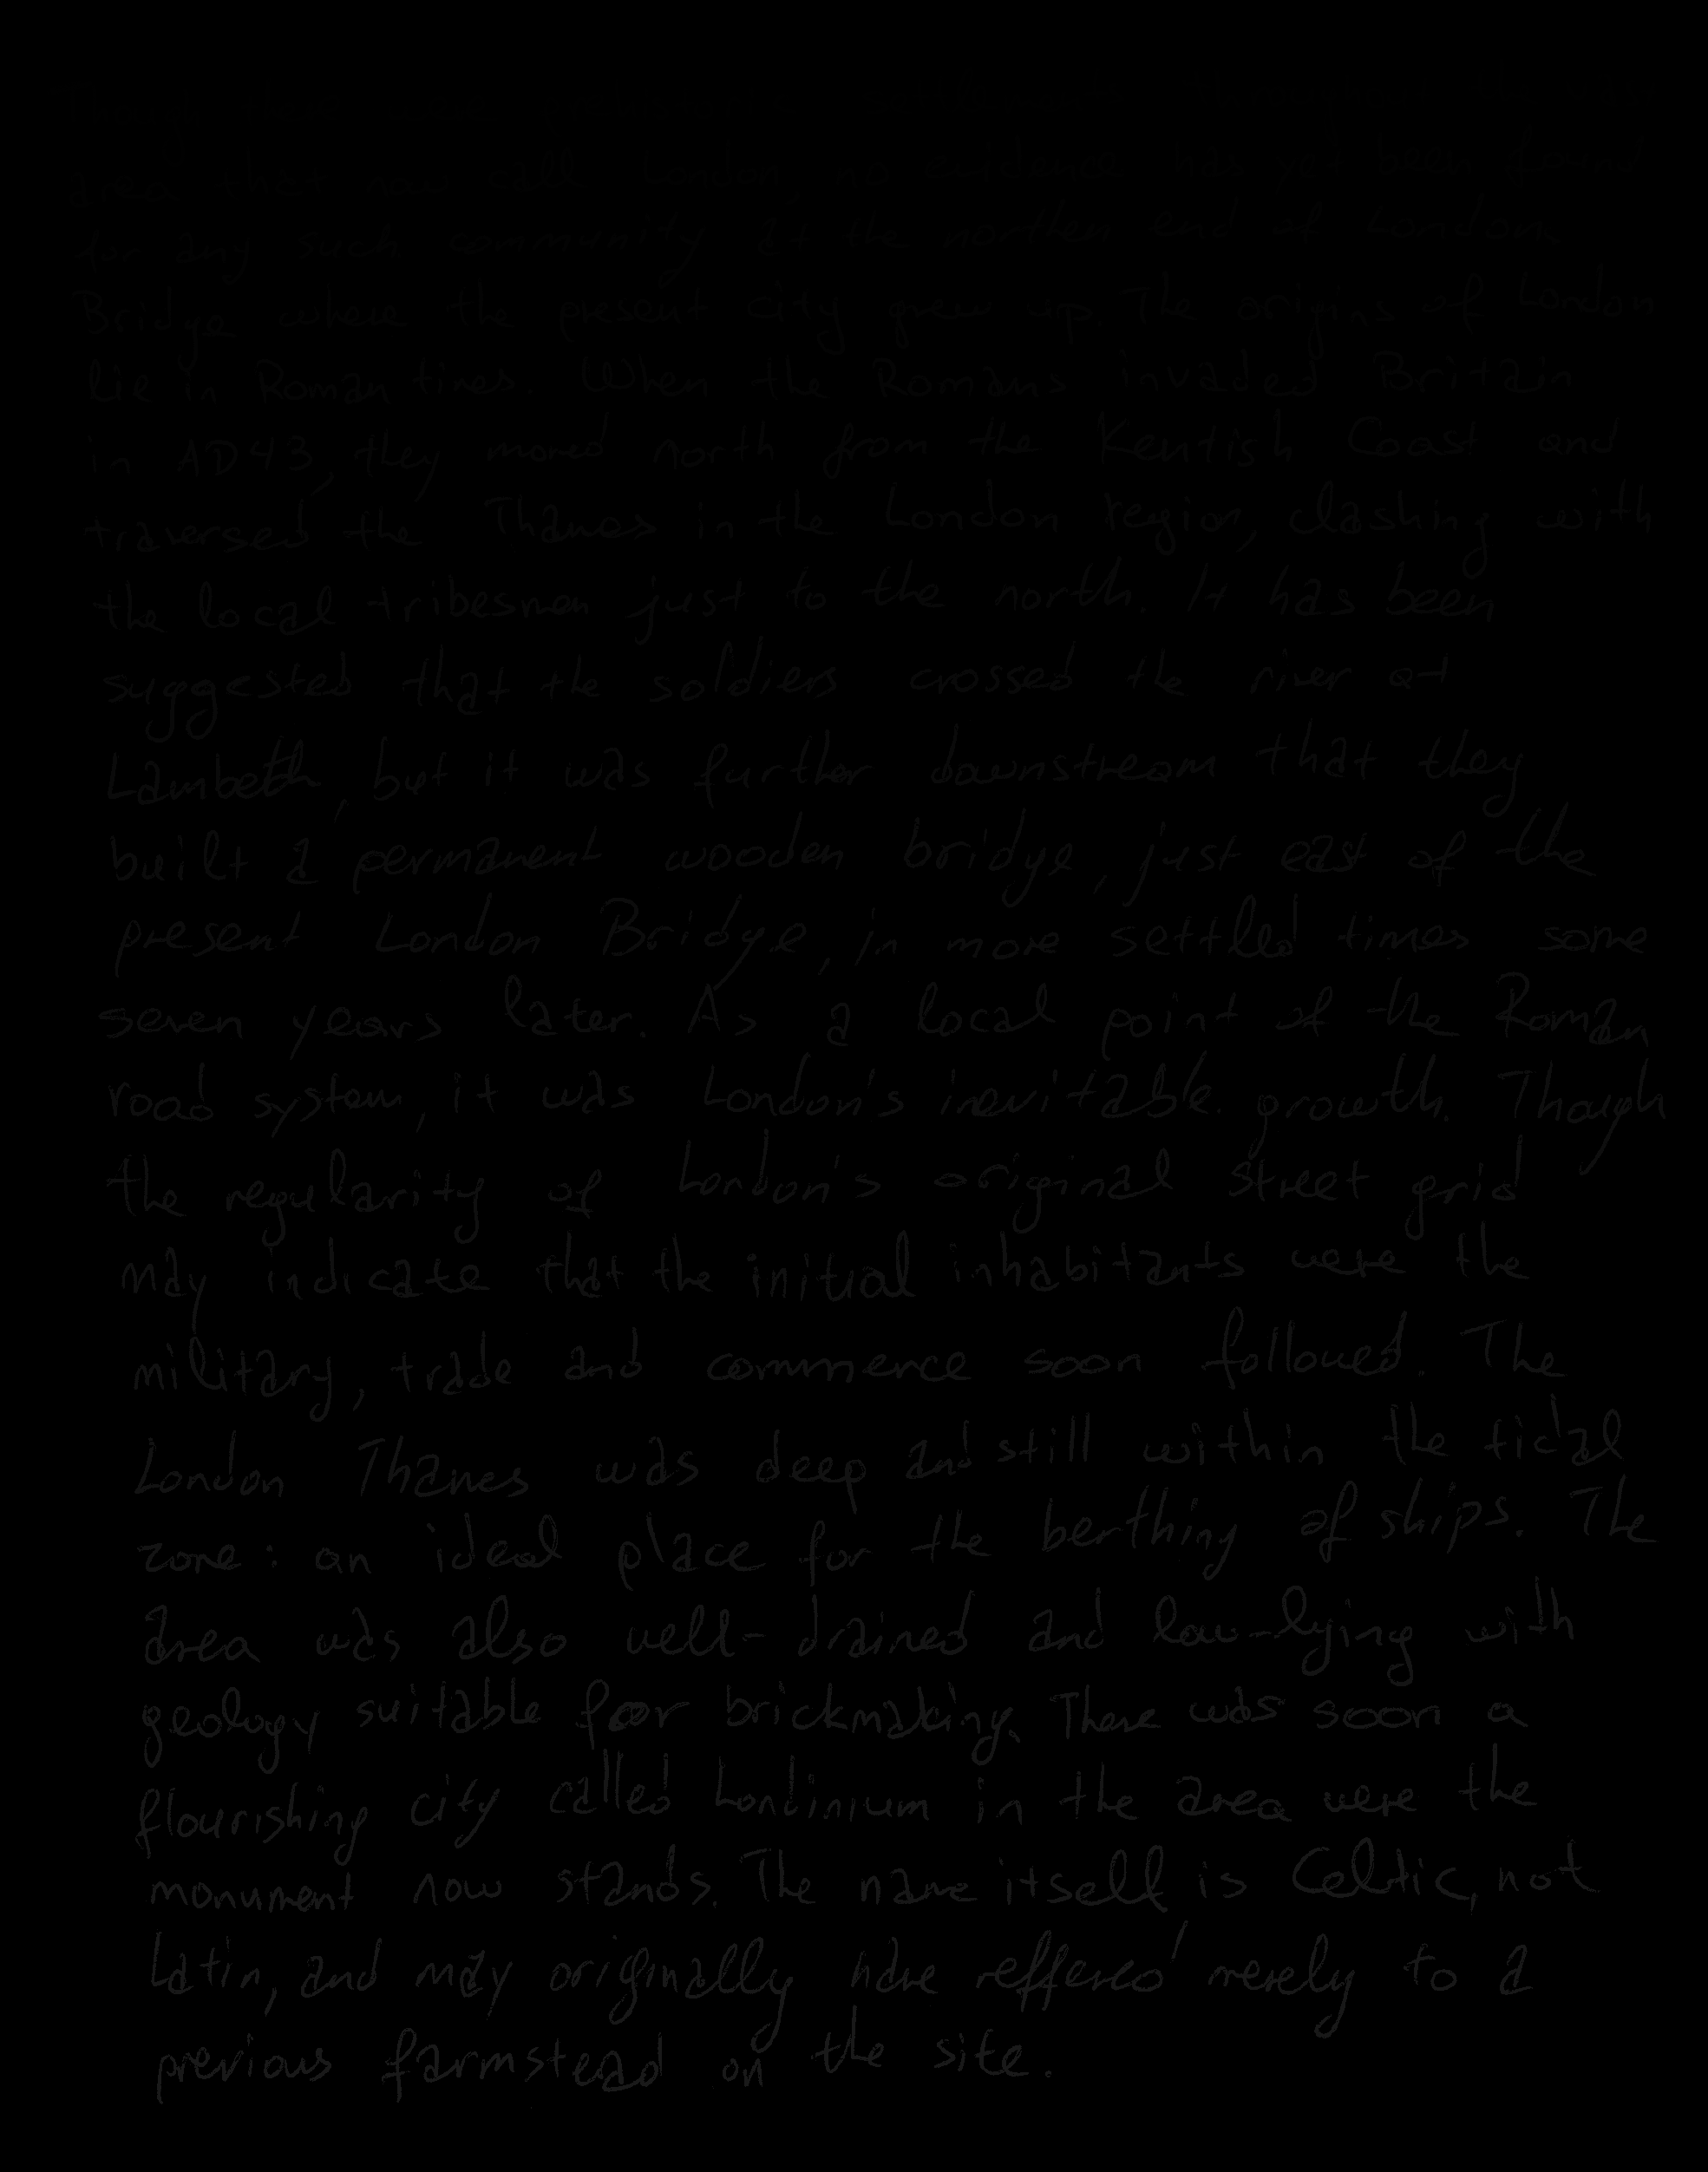 area that now call London, no evidence has yet been found
for any such community at the northen end of London
Bridge where the present city grew up. The origins of London
lie in Roman times. When the Romans invaded Britain
in AD43, they moved north from the Kentish Coast and
traversed the Thames in the London region, clashing with
the local tribesmen just to the north. It has been
suggested that the soldiers crossed the river at
Lambeth, but it was further downstream that they
built a permanent wooden bridge, just east of the
present London Bridge, in more settled times some
seven years later. As a local point of the Roman
road system, it was London's inevitable growth. Though
the regularity of London's original street grid
may indicate that the initial inhabitants were the
military, trade and commerce soon followed. The
London Thames was deep and still within the tidal
zone: an ideal place for the berthing of ships. The
area was also well-drained and low-lying with
geology suitable for brickmaking. There was soon a
flourishing city called Londinium in the area were the
monument now stands. The name itself is Celtic, not
Latin, and may originally have reffered merely to a
previous farmstead on the site.